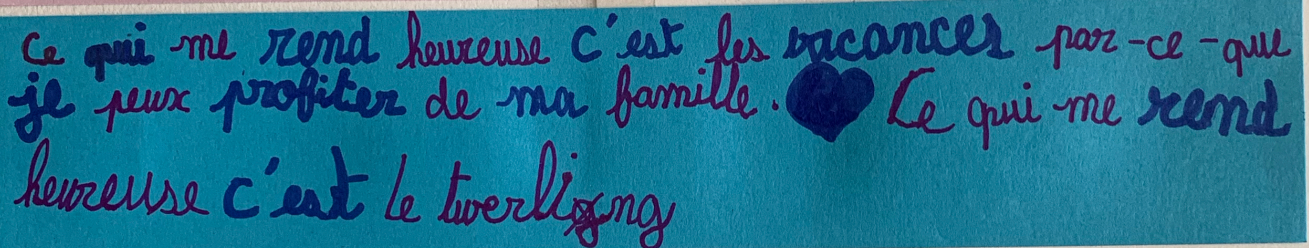 Ce qui me rend heureuse c'est les vacances par-ce-que
je peux profiter de ma famille. Ce qui me rend
heureuse c'est le twerling